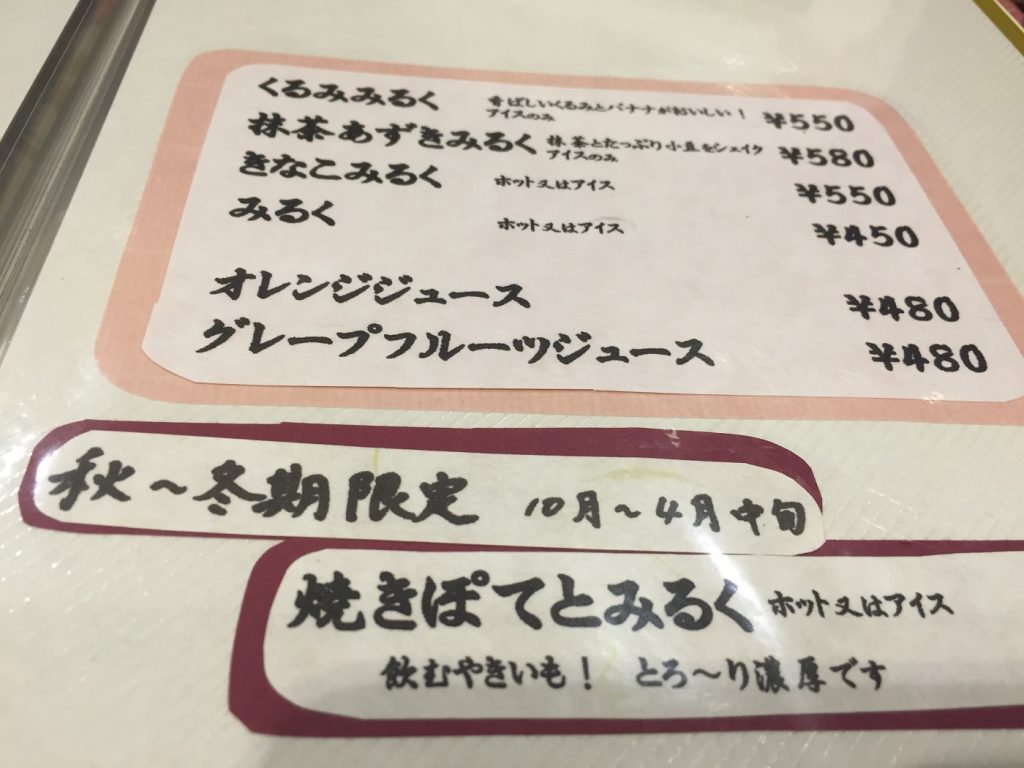 くるみみるく 香ばしいくるみとバナナがおいしい! ¥550
アイスのみ
抹茶あずきみるく 抹茶とたっぷり小豆をシェイク ¥580
アイスのみ
きなこみるく ホット又はアイス ¥550
みるく ホット又はアイス ¥450
オレンジジュース ¥480
グレープフルーツジュース ¥480
秋～冬期限定 10月～4月中旬
焼きぽてとみるく ホット又はアイス
飲むやきいも! とろ～り濃厚です